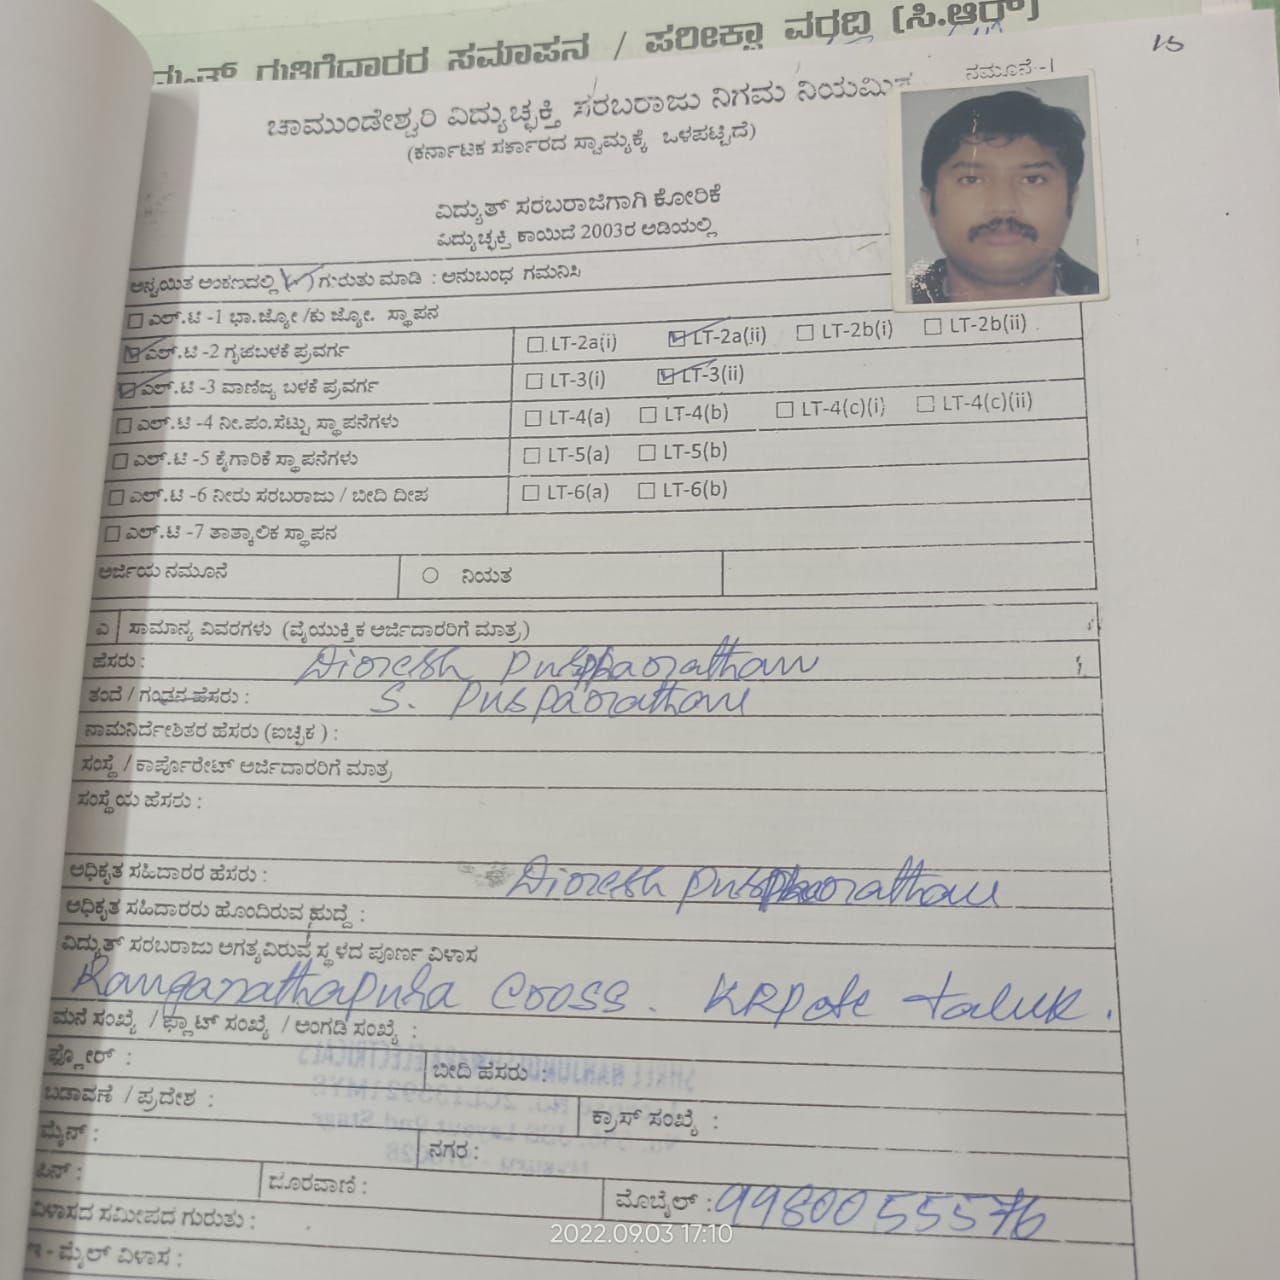 ಗುತ್ತಿಗೆದಾರರ ಸಮಾಪನ / ಪರೀಕ್ಷಾ ವರದಿ (ಸಿ.ಆರ್)
15
ನಮೂನೆ-1
ಚಾಮುಂಡೇಶ್ವರಿ ವಿದ್ಯುಚ್ಛಕ್ತಿ ಸರಬರಾಜು ನಿಗಮ ನಿಯಮಿತ
(ಕರ್ನಾಟಕ ಸರ್ಕಾರದ ಸ್ವಾಮ್ಯಕ್ಕೆ ಒಳಪಟ್ಟಿದೆ)
ವಿದ್ಯುತ್ ಸರಬರಾಜಿಗಾಗಿ ಕೋರಿಕೆ
ವಿದ್ಯುಚ್ಛಕ್ತಿ ಕಾಯಿದೆ 2003ರ ಅಡಿಯಲ್ಲಿ
ಅನ್ವಯಿತ ಅಂಕಣದಲ್ಲಿ (✓) ಗುರುತು ಮಾಡಿ : ಅನುಬಂಧ ಗಮನಿಸಿ
ಎಲ್.ಟಿ -1 ಭಾ.ಜ್ಯೋ /ಕು ಜ್ಯೋ. ಸ್ಥಾಪನ
ಎಲ್.ಟಿ -2 ಗೃಹಬಳಕೆ ಪ್ರವರ್ಗ LT-2a(i) LT-2a(ii) LT-2b(i) LT-2b(ii)
ಎಲ್.ಟಿ -3 ವಾಣಿಜ್ಯ ಬಳಕೆ ಪ್ರವರ್ಗ LT-3(i) LT-3(ii)
ಎಲ್.ಟಿ -4 ನೀ.ಪಂ.ಸೆಟ್ಟು ಸ್ಥಾಪನೆಗಳು LT-4(a) LT-4(b) LT-4(c)(i) LT-4(c)(ii)
ಎಲ್.ಟಿ -5 ಕೈಗಾರಿಕೆ ಸ್ಥಾಪನೆಗಳು LT-5(a) LT-5(b)
ಎಲ್.ಟಿ -6 ನೀರು ಸರಬರಾಜು / ಬೀದಿ ದೀಪ LT-6(a) LT-6(b)
ಎಲ್.ಟಿ -7 ತಾತ್ಕಾಲಿಕ ಸ್ಥಾಪನ
ಅರ್ಜಿಯ ನಮೂನೆ ನಿಯತ
ಎ ಸಾಮಾನ್ಯ ವಿವರಗಳು (ವೈಯುಕ್ತಿಕ ಅರ್ಜಿದಾರರಿಗೆ ಮಾತ್ರ)
ಹೆಸರು :
ತಂದೆ / ಗಂಡನ ಹೆಸರು : S.
ನಾಮನಿರ್ದೇಶಿತರ ಹೆಸರು (ಐಚ್ಛಿಕ ) :
ಸಂಸ್ಥೆ / ಕಾರ್ಪೊರೇಟ್ ಅರ್ಜಿದಾರರಿಗೆ ಮಾತ್ರ
ಸಂಸ್ಥೆಯ ಹೆಸರು :
ಅಧಿಕೃತ ಸಹಿದಾರರ ಹೆಸರು :
ಅಧಿಕೃತ ಸಹಿದಾರರು ಹೊಂದಿರುವ ಹುದ್ದೆ :
ವಿದ್ಯುತ್ ಸರಬರಾಜು ಅಗತ್ಯವಿರುವ ಸ್ಥಳದ ಪೂರ್ಣ ವಿಳಾಸ
Ranganathapura Cross. KRPete taluk.
ಮನೆ ಸಂಖ್ಯೆ / ಫ್ಲಾಟ್ ಸಂಖ್ಯೆ / ಅಂಗಡಿ ಸಂಖ್ಯೆ :
ಫ್ಲೋರ್ : ಬೀದಿ ಹೆಸರು :
ಬಡಾವಣೆ / ಪ್ರದೇಶ : ಕ್ರಾಸ್ ಸಂಖ್ಯೆ :
ಮೈನ್ : ನಗರ :
ಪಿನ್ : ದೂರವಾಣಿ : ಮೊಬೈಲ್ : 9980055576
ವಿಳಾಸದ ಸಮೀಪದ ಗುರುತು :
ಇ - ಮೈಲ್ ವಿಳಾಸ :
2022.09.03 17:10